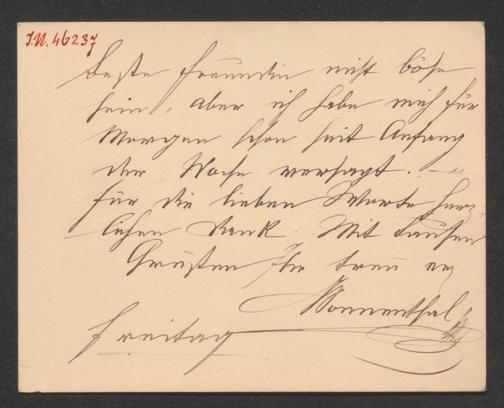 J.N. 46237
Beste Freundin nicht böse
sein, aber ich habe mich für
Morgen schon seit Anfang
der Woche versagt. –
Für die lieben Worte herz
lichen Dank. Mit tausen
Grüßen Ihr treu erg
Sonnenthal
Freitag